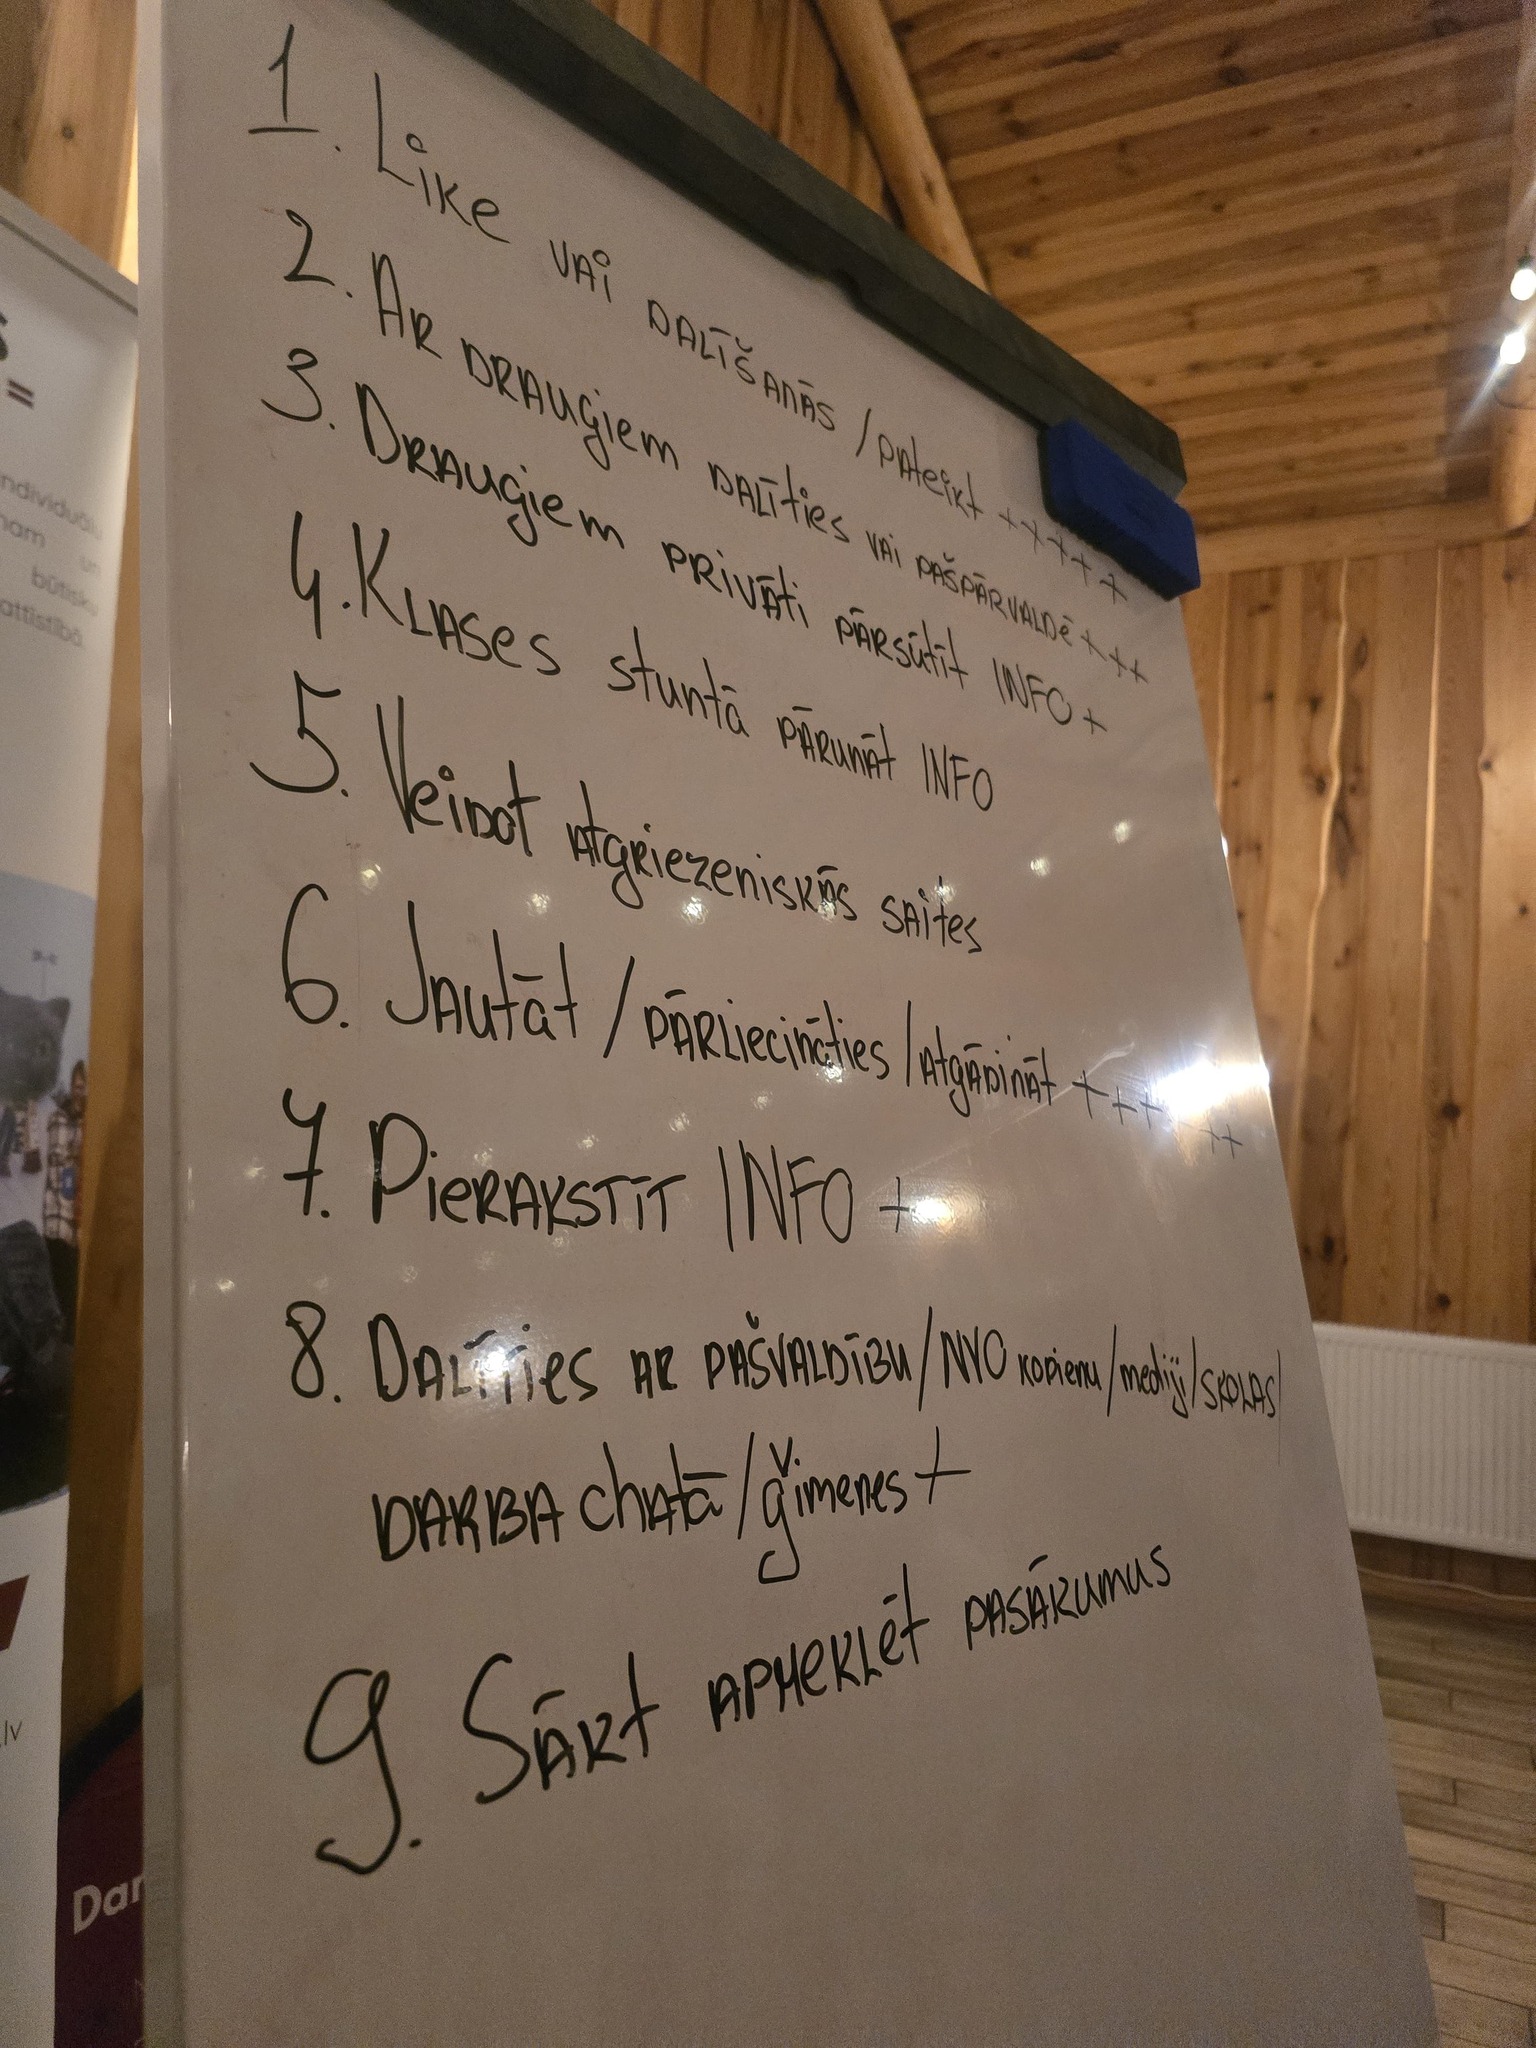 1. Like vai DALĪŠANĀS / pateikt +++++
2. AR DRAUĢIEM DALĪTIES VAI PAŠPĀRVALDĒ +++
3. DRAUĢIEM PRIVĀTI PĀRSŪTĪT INFO +
4. KLASES stuntā PĀRUNĀT INFO
5. Veidot atgriezeniskās saites
6. JAUTĀT / PĀRLIECINĀTIES / ATGĀDINĀT +++ ++
7. PIERAKSTĪT INFO +
8. DALĪTIES AR PAŠVALDĪBU / NVO kopienu / mediji / SKOLAS /
DARBA chatā / ģimenes +
9. SĀKT APMEKLĒT PASĀKUMUS
=
būtisku
.lv